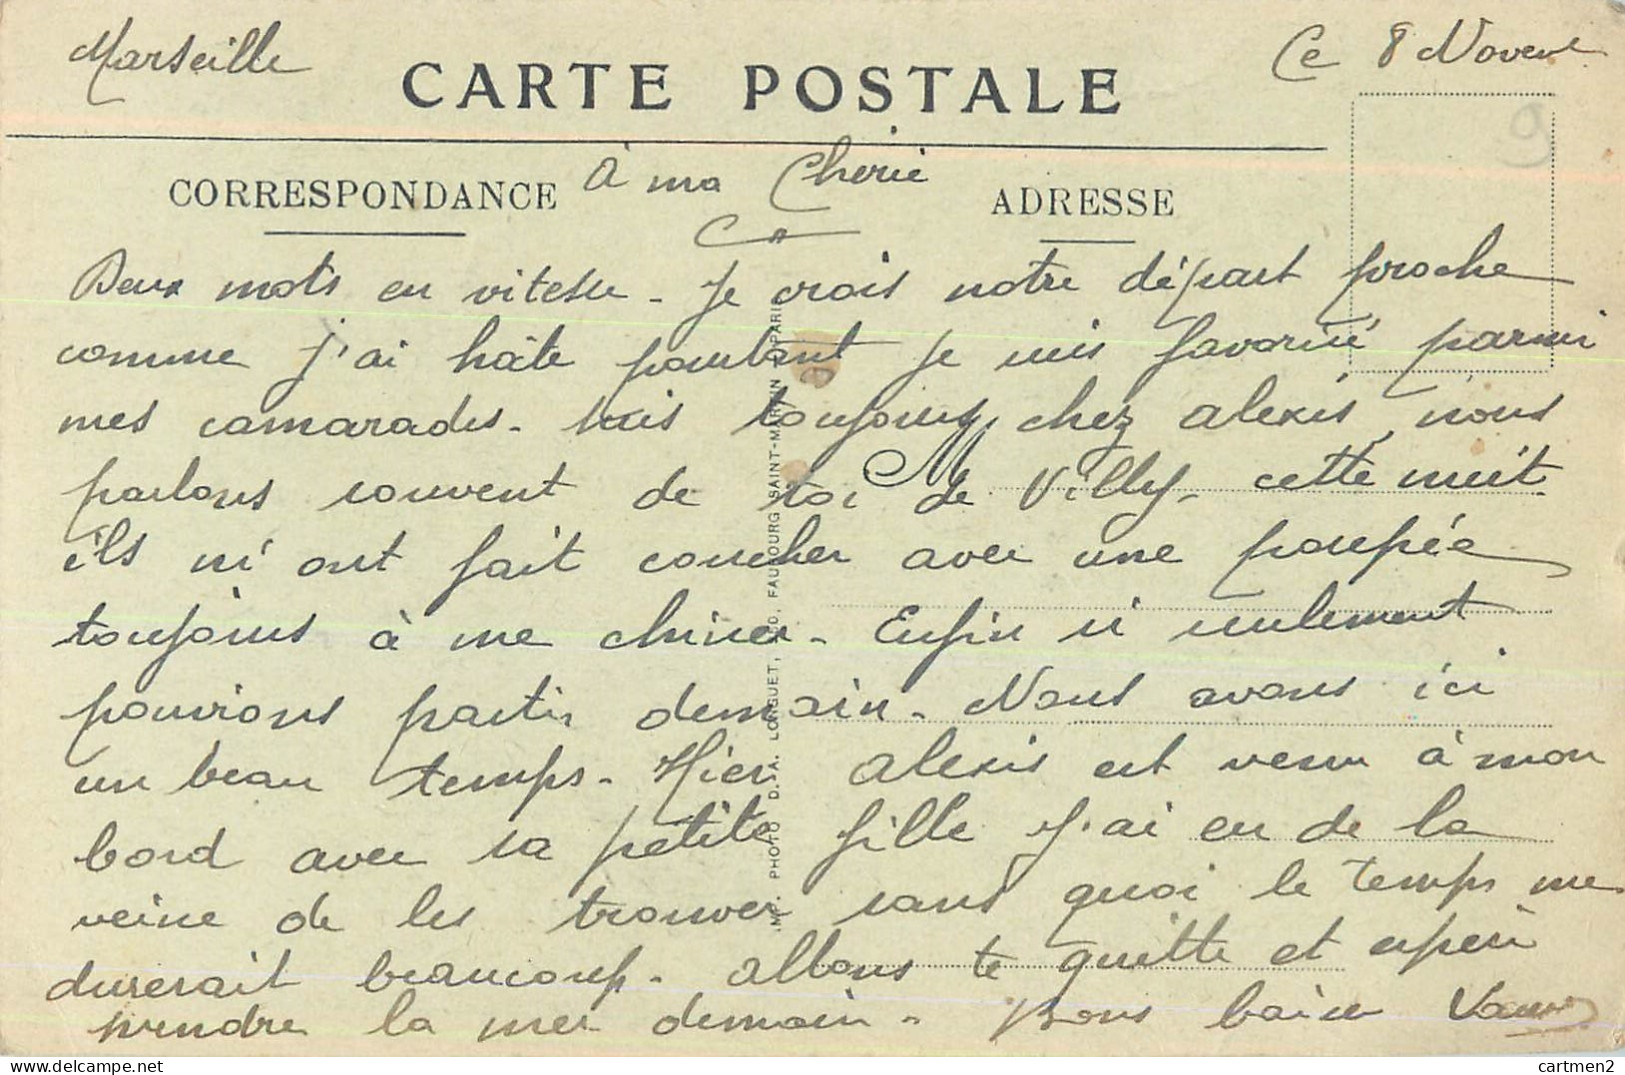 Marseille
Ce 8 Novem
CARTE POSTALE
9
à ma Cherie
CORRESPONDANCE
ADRESSE
Deux mots en vitesse - Je crois notre départ proche
comme j'ai hâte pourtant je suis favorisé parmi
mes camarades - suis toujours chez Alexis, nous
parlons souvent de toi de Villy, cette nuit
ils m'ont fait coucher avec une poupée
toujours à me chiner - Enfin si seulement
pouvions partir demain - Nous avons ici
un beau temps - Hier Alexis est venu à mon
bord avec sa petite fille j'ai eu de la
veine de les trouver sans quoi le temps me
durerait beaucoup - allons te quitte et espère
prendre la mer demain - Bons baisers
IMP. PHOTO D. A. LONGUET, 250, FAUBOURG SAINT-MARTIN PARIS
cartmen2